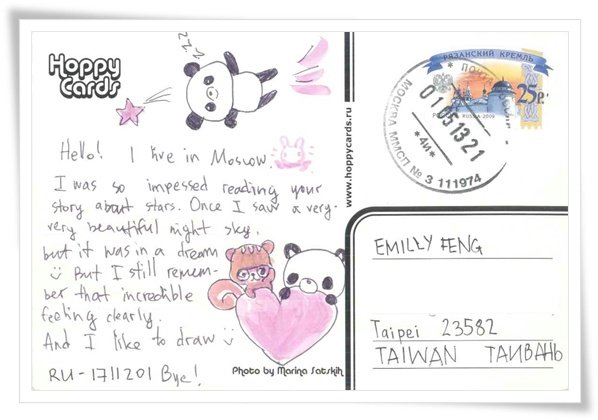 Hoppy
Cards
Hello! I live in Moscow
I was so impessed reading your
story about stars. Once I saw a very-
very beautiful night sky,
but it was in a dream
But I still remem-
ber that incredible
feeling clearly.
And I like to draw
RU-1711201 Bye!
Photo by Marina Satskih
www.hoppycards.ru
РЯЗАНСКИЙ КРЕМЛЬ
25р
RUSSIA·2009
МОСКВА ММСП № 3 111974
01 05 13 21
*4И*
EMILLY FENG
Taipei 23582
TAIWAN ТАИВАНЬ